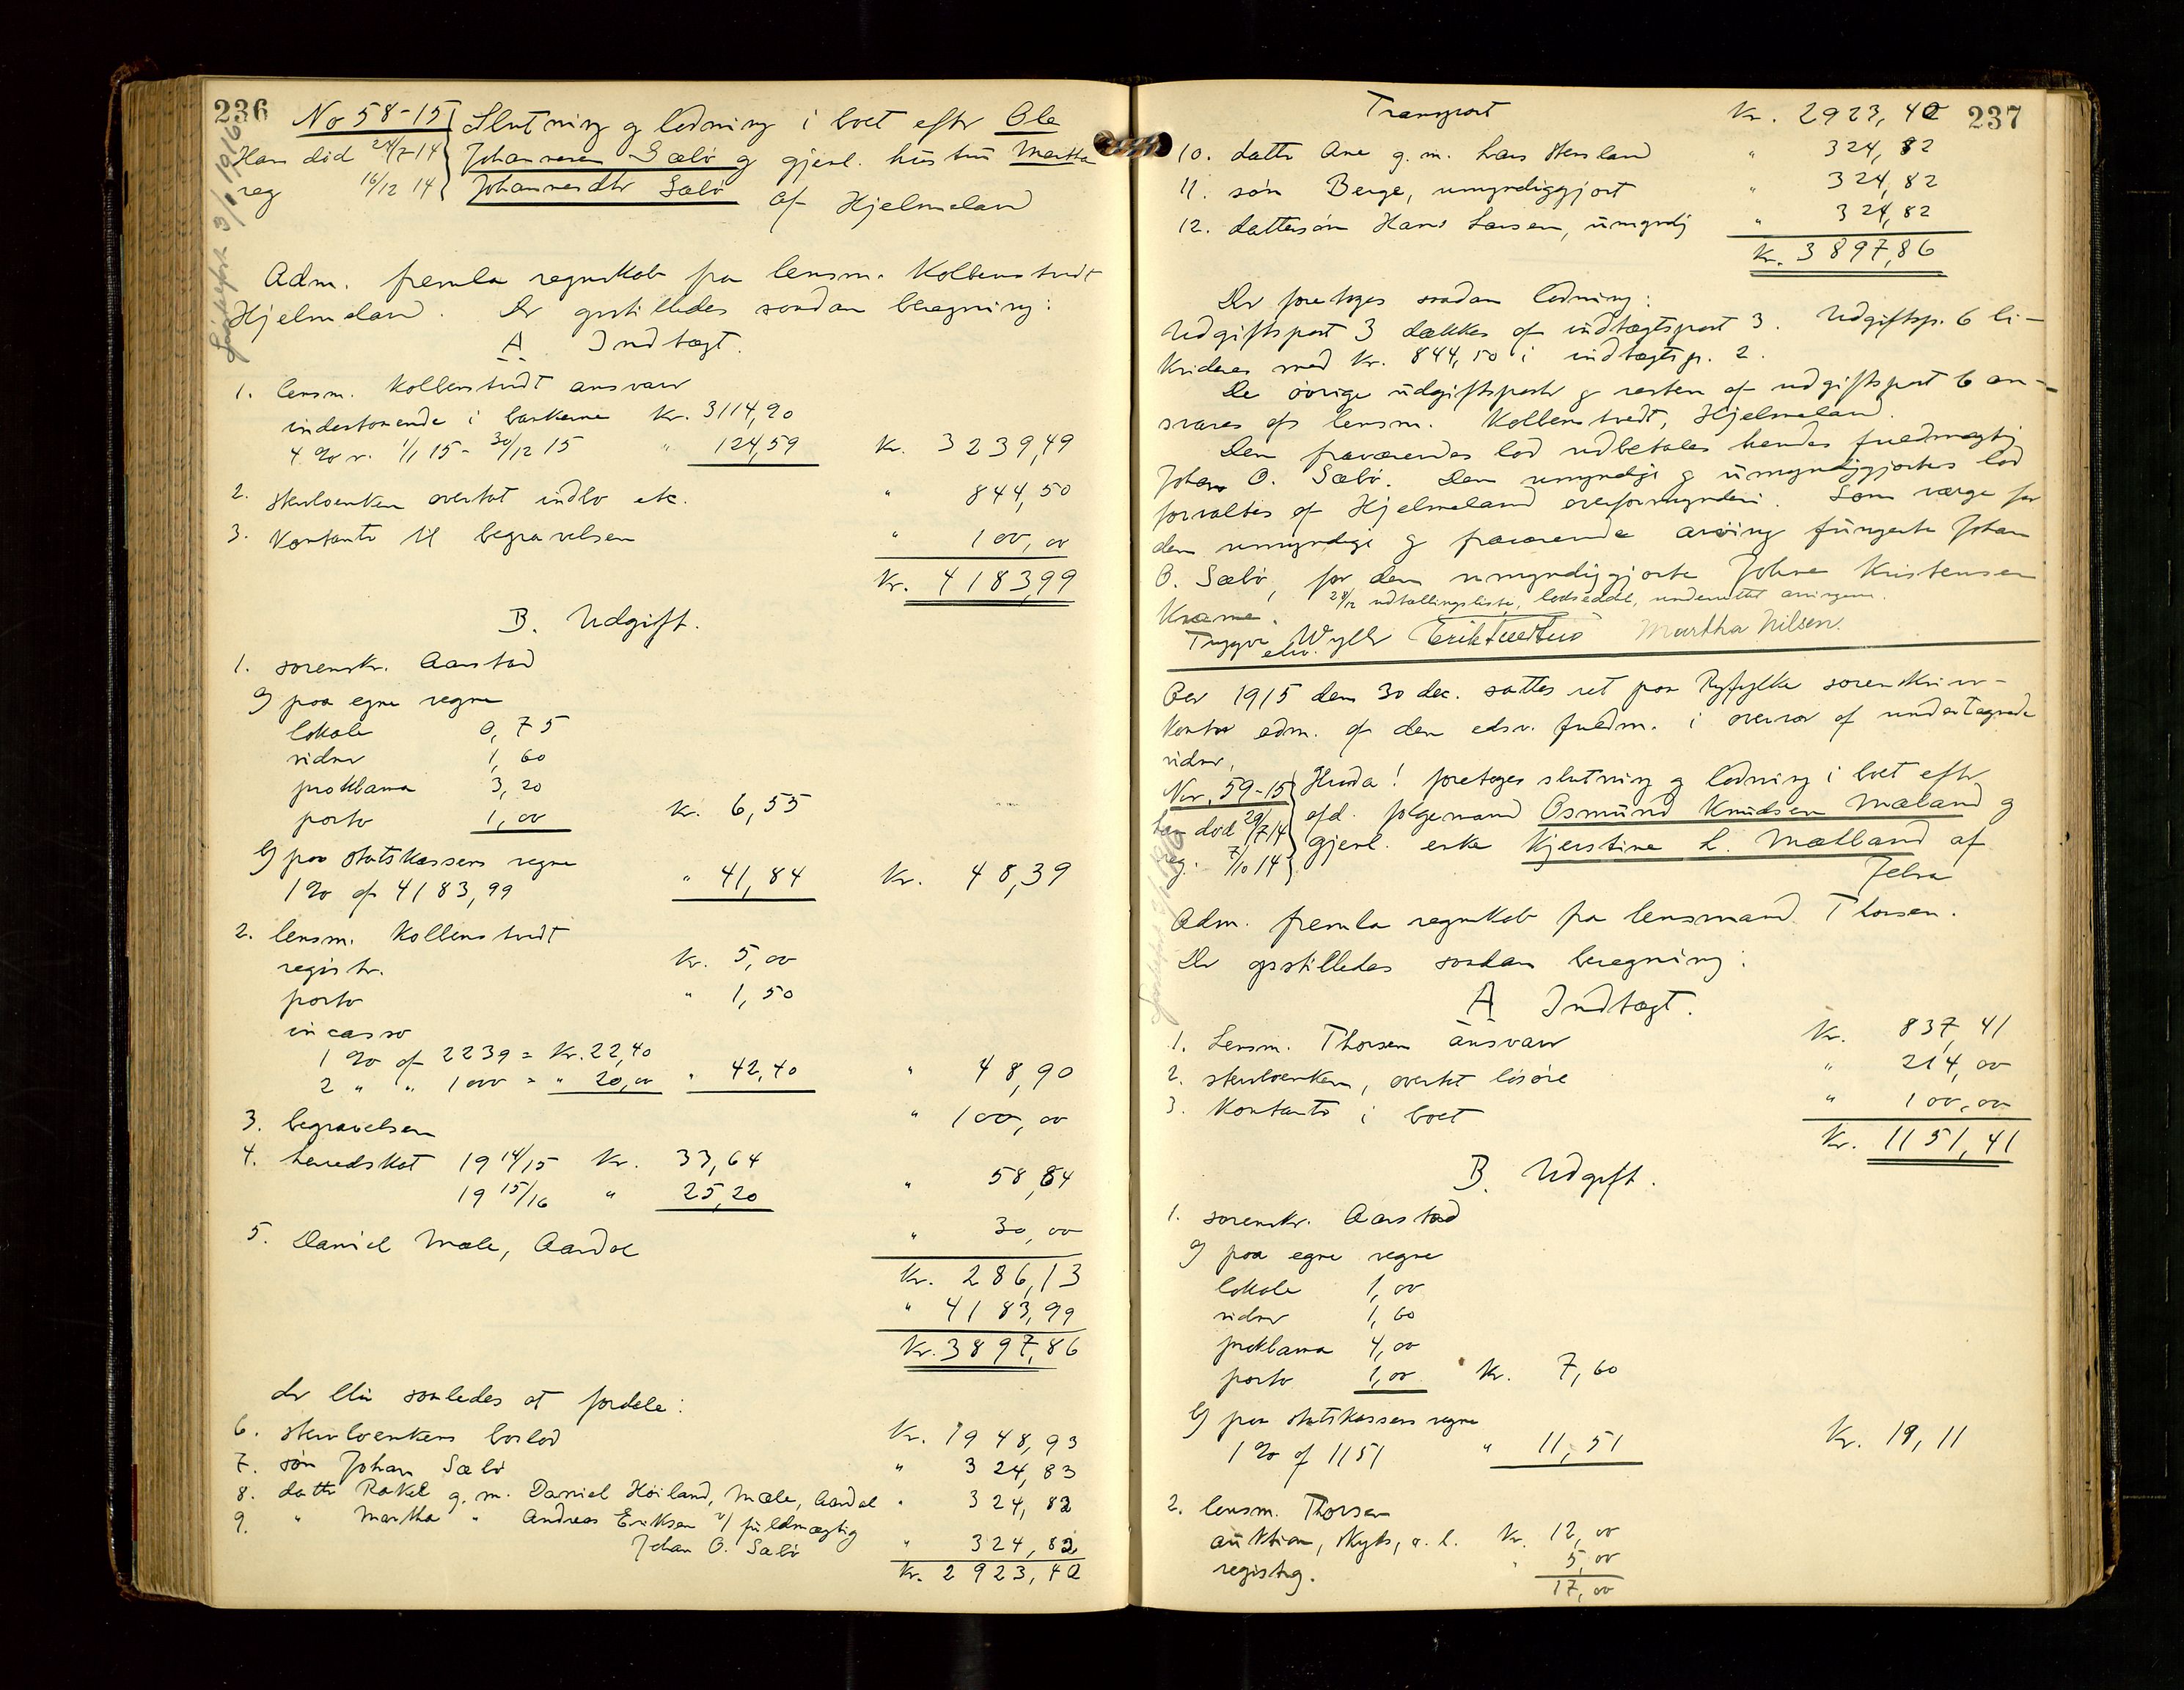 236
No 58-15 Slutning g lodning i boet efter Ole
Han död 24/7-14 Johannesen Sælö g gjenl. hustru Martha
reg 16/12 14 Johannesdtr Sælö af Hjelmeland
3/1 1916
Adm. fremla regnskab fra lensm. Kolbenstvedt
Hjelmeland. Der opstilledes saadan beregning:
A Indtægt.
1. lensm. Kolbenstvedt ansvar
indestaaende i bankerne Kr. 3114,90
4 % r. 1/1 15 - 30/12 15 " 124,59 Kr. 3239,49
2. Stervboenken overtat indbo etc. " 844,50
3. Kontanter til begravelsen " 100,00
Kr. 4183,99
B. Udgift.
1. sorenskr. Aarstad
a) paa egne regne
lokale 0,75
vidner 1,60
proklama 3,20
porto 1,00 Kr. 6,55
b) paa statskassens regne
1 % af 4183,99 " 41,84 Kr. 48,39
2. lensm. Kolbenstvedt
registr. Kr. 5,00
porto " 1,50
incasso
1 % af 2239 = Kr. 22,40
2 " " 1000 = " 20,00 " 42,40 " 48,90
3. begravelsen " 100,00
4. herredskat 19 14/15 Kr. 33,64
19 15/16 " 25,20 " 58,84
5. Daniel Mæle, Aardal " 30,00
Kr. 286,13
" 4183,99
Kr. 3897,86
der blir saaledes at fordele:
6. stervboenkens boslod Kr. 1948,93
7. sön Johan Sælö " 324,83
8. datter Rakel g. m. Daniel Höiland, Mæle, Aardal " 324,82
9. " Martha " Andreas Eriksen v/ fuldmægtig
Johan O. Sælö " 324,82
Kr. 2923,40
237
Transport Kr. 2923,40
10. datter Ane g. m. Lars Stensland " 324,82
11. sön Berge, umyndiggjort " 324,82
12. dattersön Hans Larsen, umyndig " 324,82
Kr. 3897,86
Der foretoges saadan lodning:
Udgiftspost 3 dækkes af indtægtspost 3. Udgiftsp. 6 li-
kvideres med Kr. 844,50 i indtægtsp. 2.
De övrige udgiftsposter g resten af udgiftspost 6 an-
svares af lensm. Kolbenstvedt, Hjelmeland.
Den fraværendes lod udbetales hendes fuldmægtig
Johan O. Sælö. Den umyndige g umyndiggjortes lod
forvaltes af Hjelmeland overformynderi. Som værge for
den umyndige g fraværende arving fungerte Johan
O. Sælö, for den umyndiggjorte Johne Kristensen
Kvame. 28/12 udtællingsliste, lodseddel, underrettet arvingerne.
Trygve Wyller Erik Tveitnes Martha Nilsen.
edsv.
Aar 1915 den 30 dec. sattes ret paa Ryfylke sorenskriver-
kontor adm. af den edsv. fuldm. i overvær af undertegnede
vidner,
Nr. 59-15 Hvorda! foretoges slutning g lodning i boet efter
han död 29/7 14 afd. födemand Osmund Knudsen Mæland g
reg. 7/10 14 gjenl. enke Kjerstine L. Mælland af
Jelsa
Adm. fremla regnskab fra lensmand Thorsen.
Der opstilledes saadan beregning:
A Indtægt.
1. Lensm. Thorsen ansvar Kr. 837,41
2. stervboenken, overtat lösöre " 214,00
3. Kontanter i boet " 100,00
Kr. 1151,41
B. Udgift.
1. sorenskr. Aarstad
a) paa egne regne
lokale 1,00
vidner 1,60
proklama 4,00
porto 1,00 Kr. 7,60
b) paa statskassens regne
1 % af 1151 " 11,51 Kr. 19,11
2. lensm. Thorsen
auktion, skyds, o. l. Kr. 12,00
registrg. " 5,00
17,00